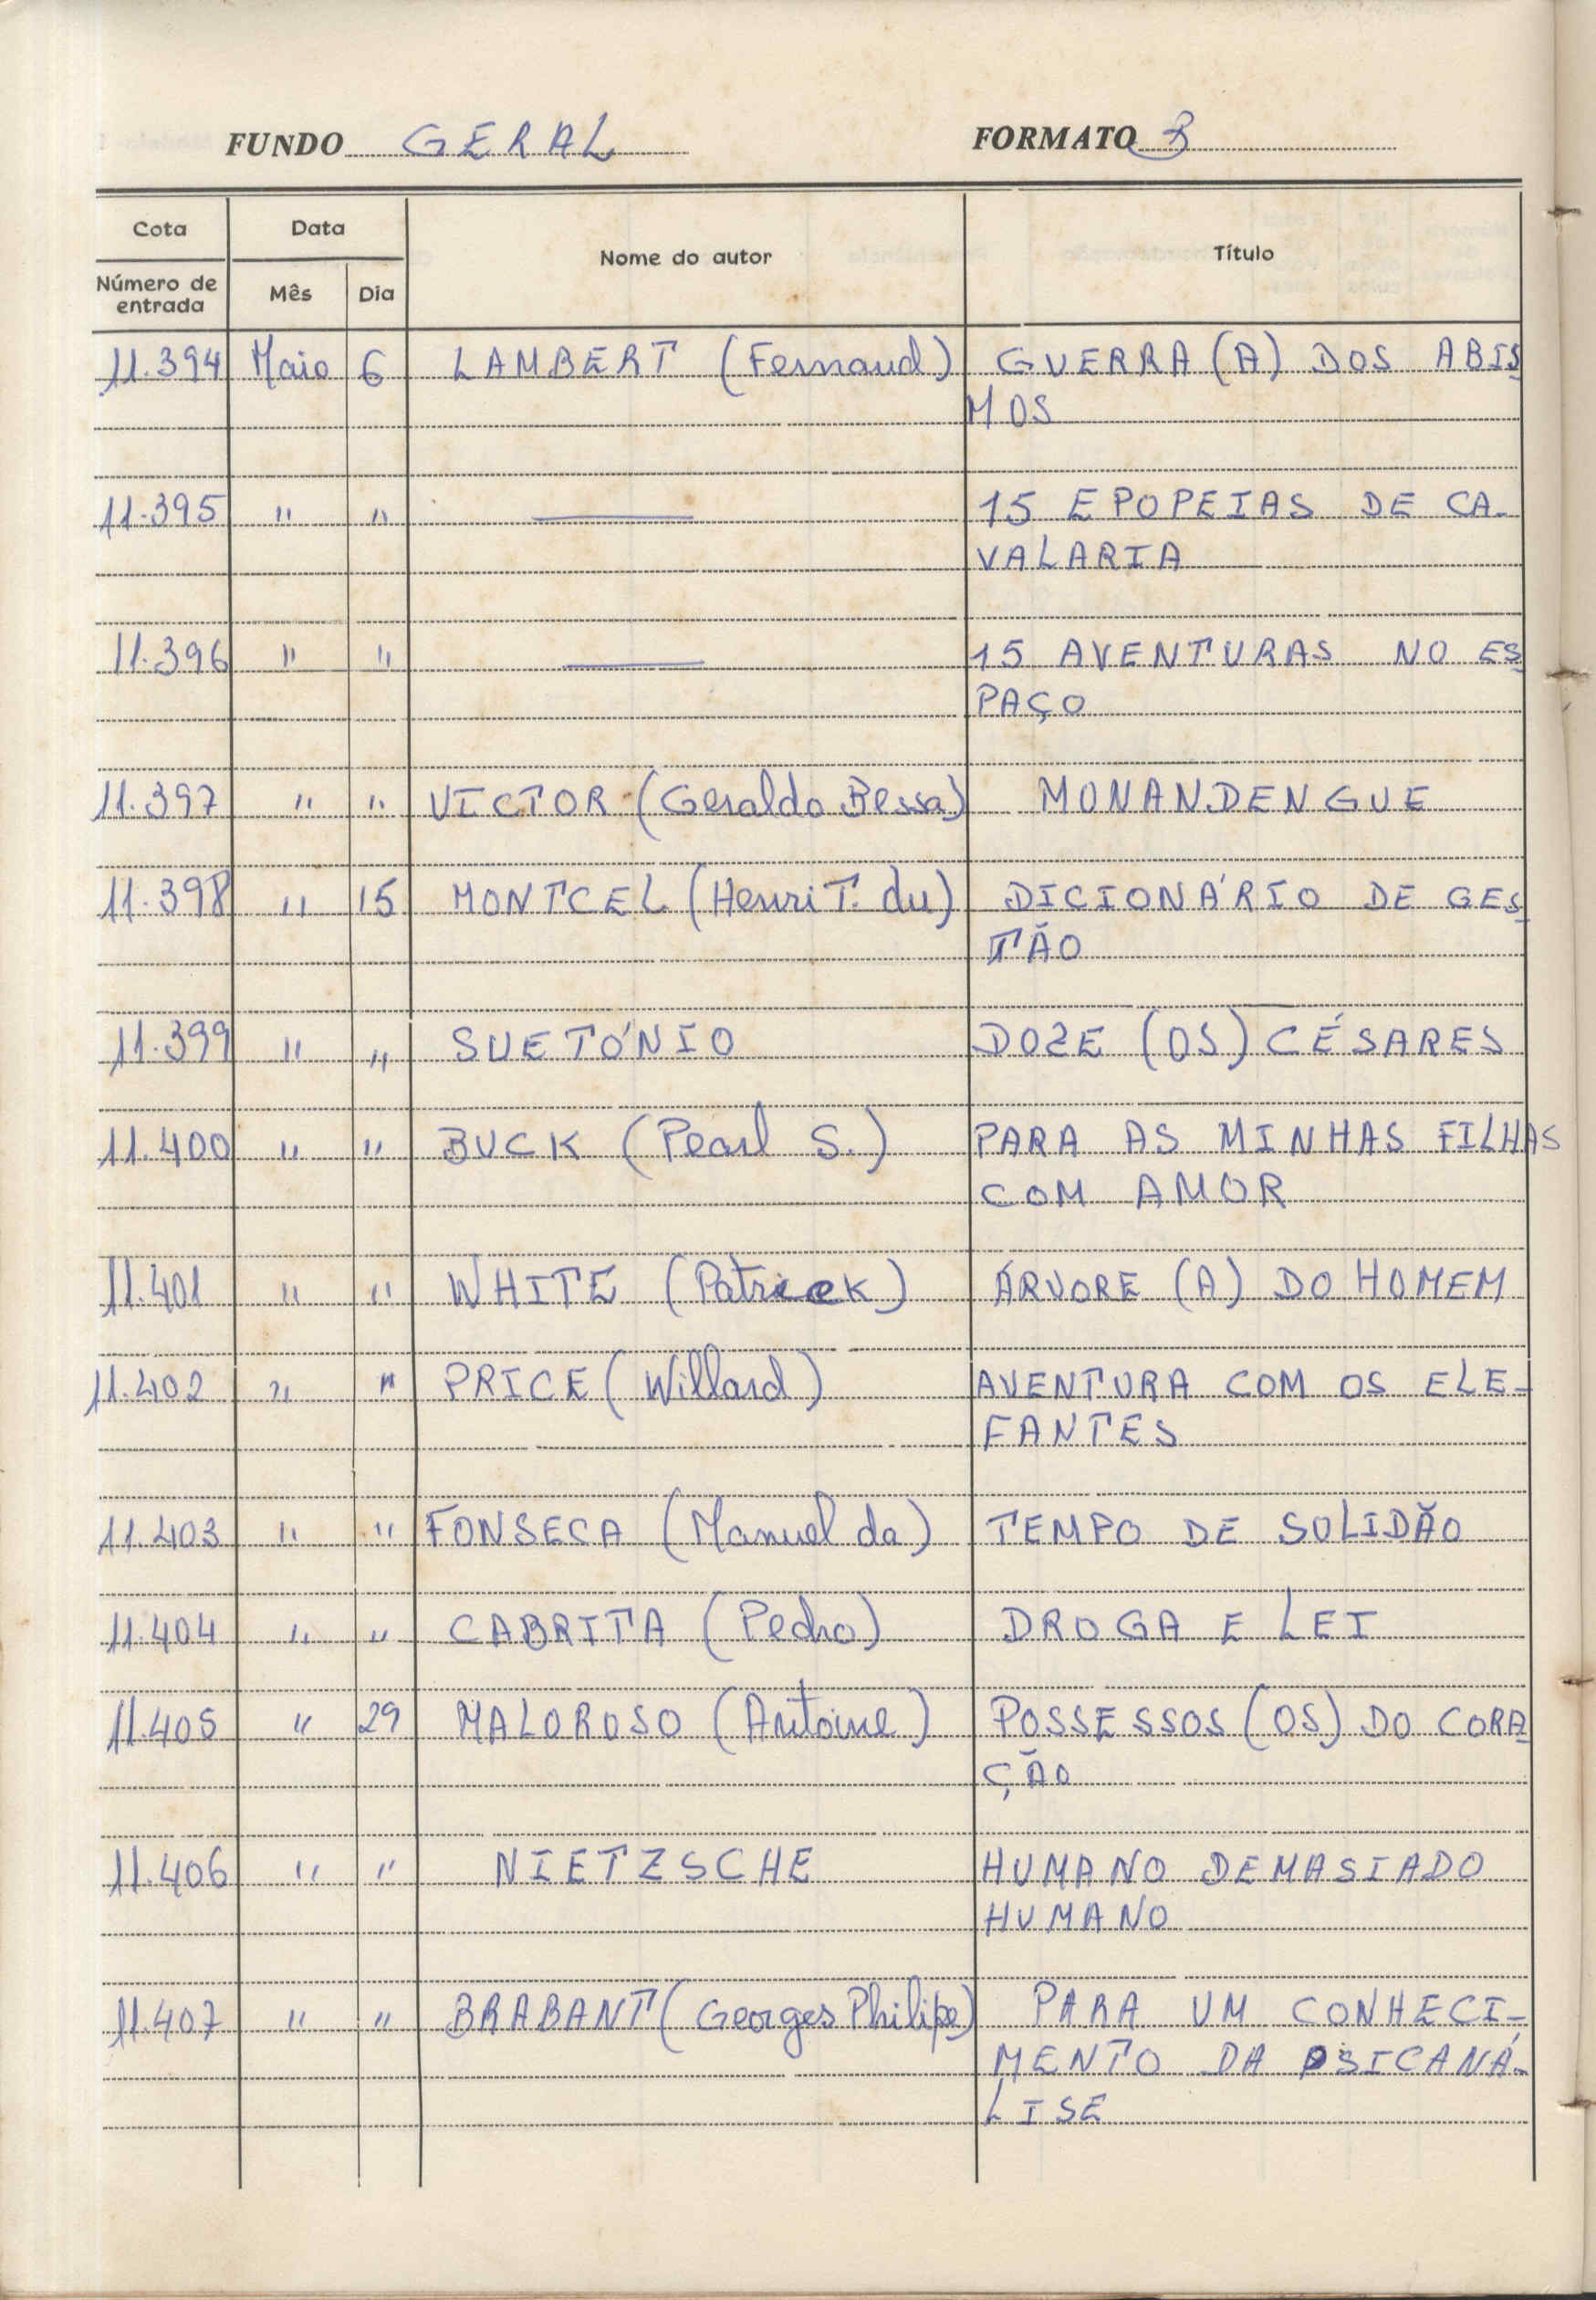 FUNDO GERAL FORMATO B
Cota Data Nome do autor Título
Número de entrada Mês Dia
11.394 Maio 6 LAMBERT (Fernand) GUERRA (A) DOS ABIS
MOS
11.395 " " — 15 EPOPEIAS DE CA-
VALARIA
11.396 " " — 15 AVENTURAS NO ES
PAÇO
11.397 " " VICTOR (Geraldo Bessa) MONANDENGUE
11.398 " 15 MONTCEL (Henri T. du) DICIONÁRIO DE GES
TÃO
11.399 " " SUETÓNIO DOZE (OS) CÉSARES
11.400 " " BUCK (Pearl S.) PARA AS MINHAS FILHAS
COM AMOR
11.401 " " WHITE (Patrick) ÁRVORE (A) DO HOMEM
11.402 " " PRICE (Willard) AVENTURA COM OS ELE-
FANTES
11.403 " " FONSECA (Manuel da) TEMPO DE SOLIDÃO
11.404 " " CABRITA (Pedro) DROGA E LEI
11.405 " 29 MALOROSO (Antoine) POSSESSOS (OS) DO CORA
ÇÃO
11.406 " " NIETZSCHE HUMANO DEMASIADO
HUMANO
11.407 " " BRABANT (Georges Philipe) PARA UM CONHECI-
MENTO DA PSICANÁ-
LISE